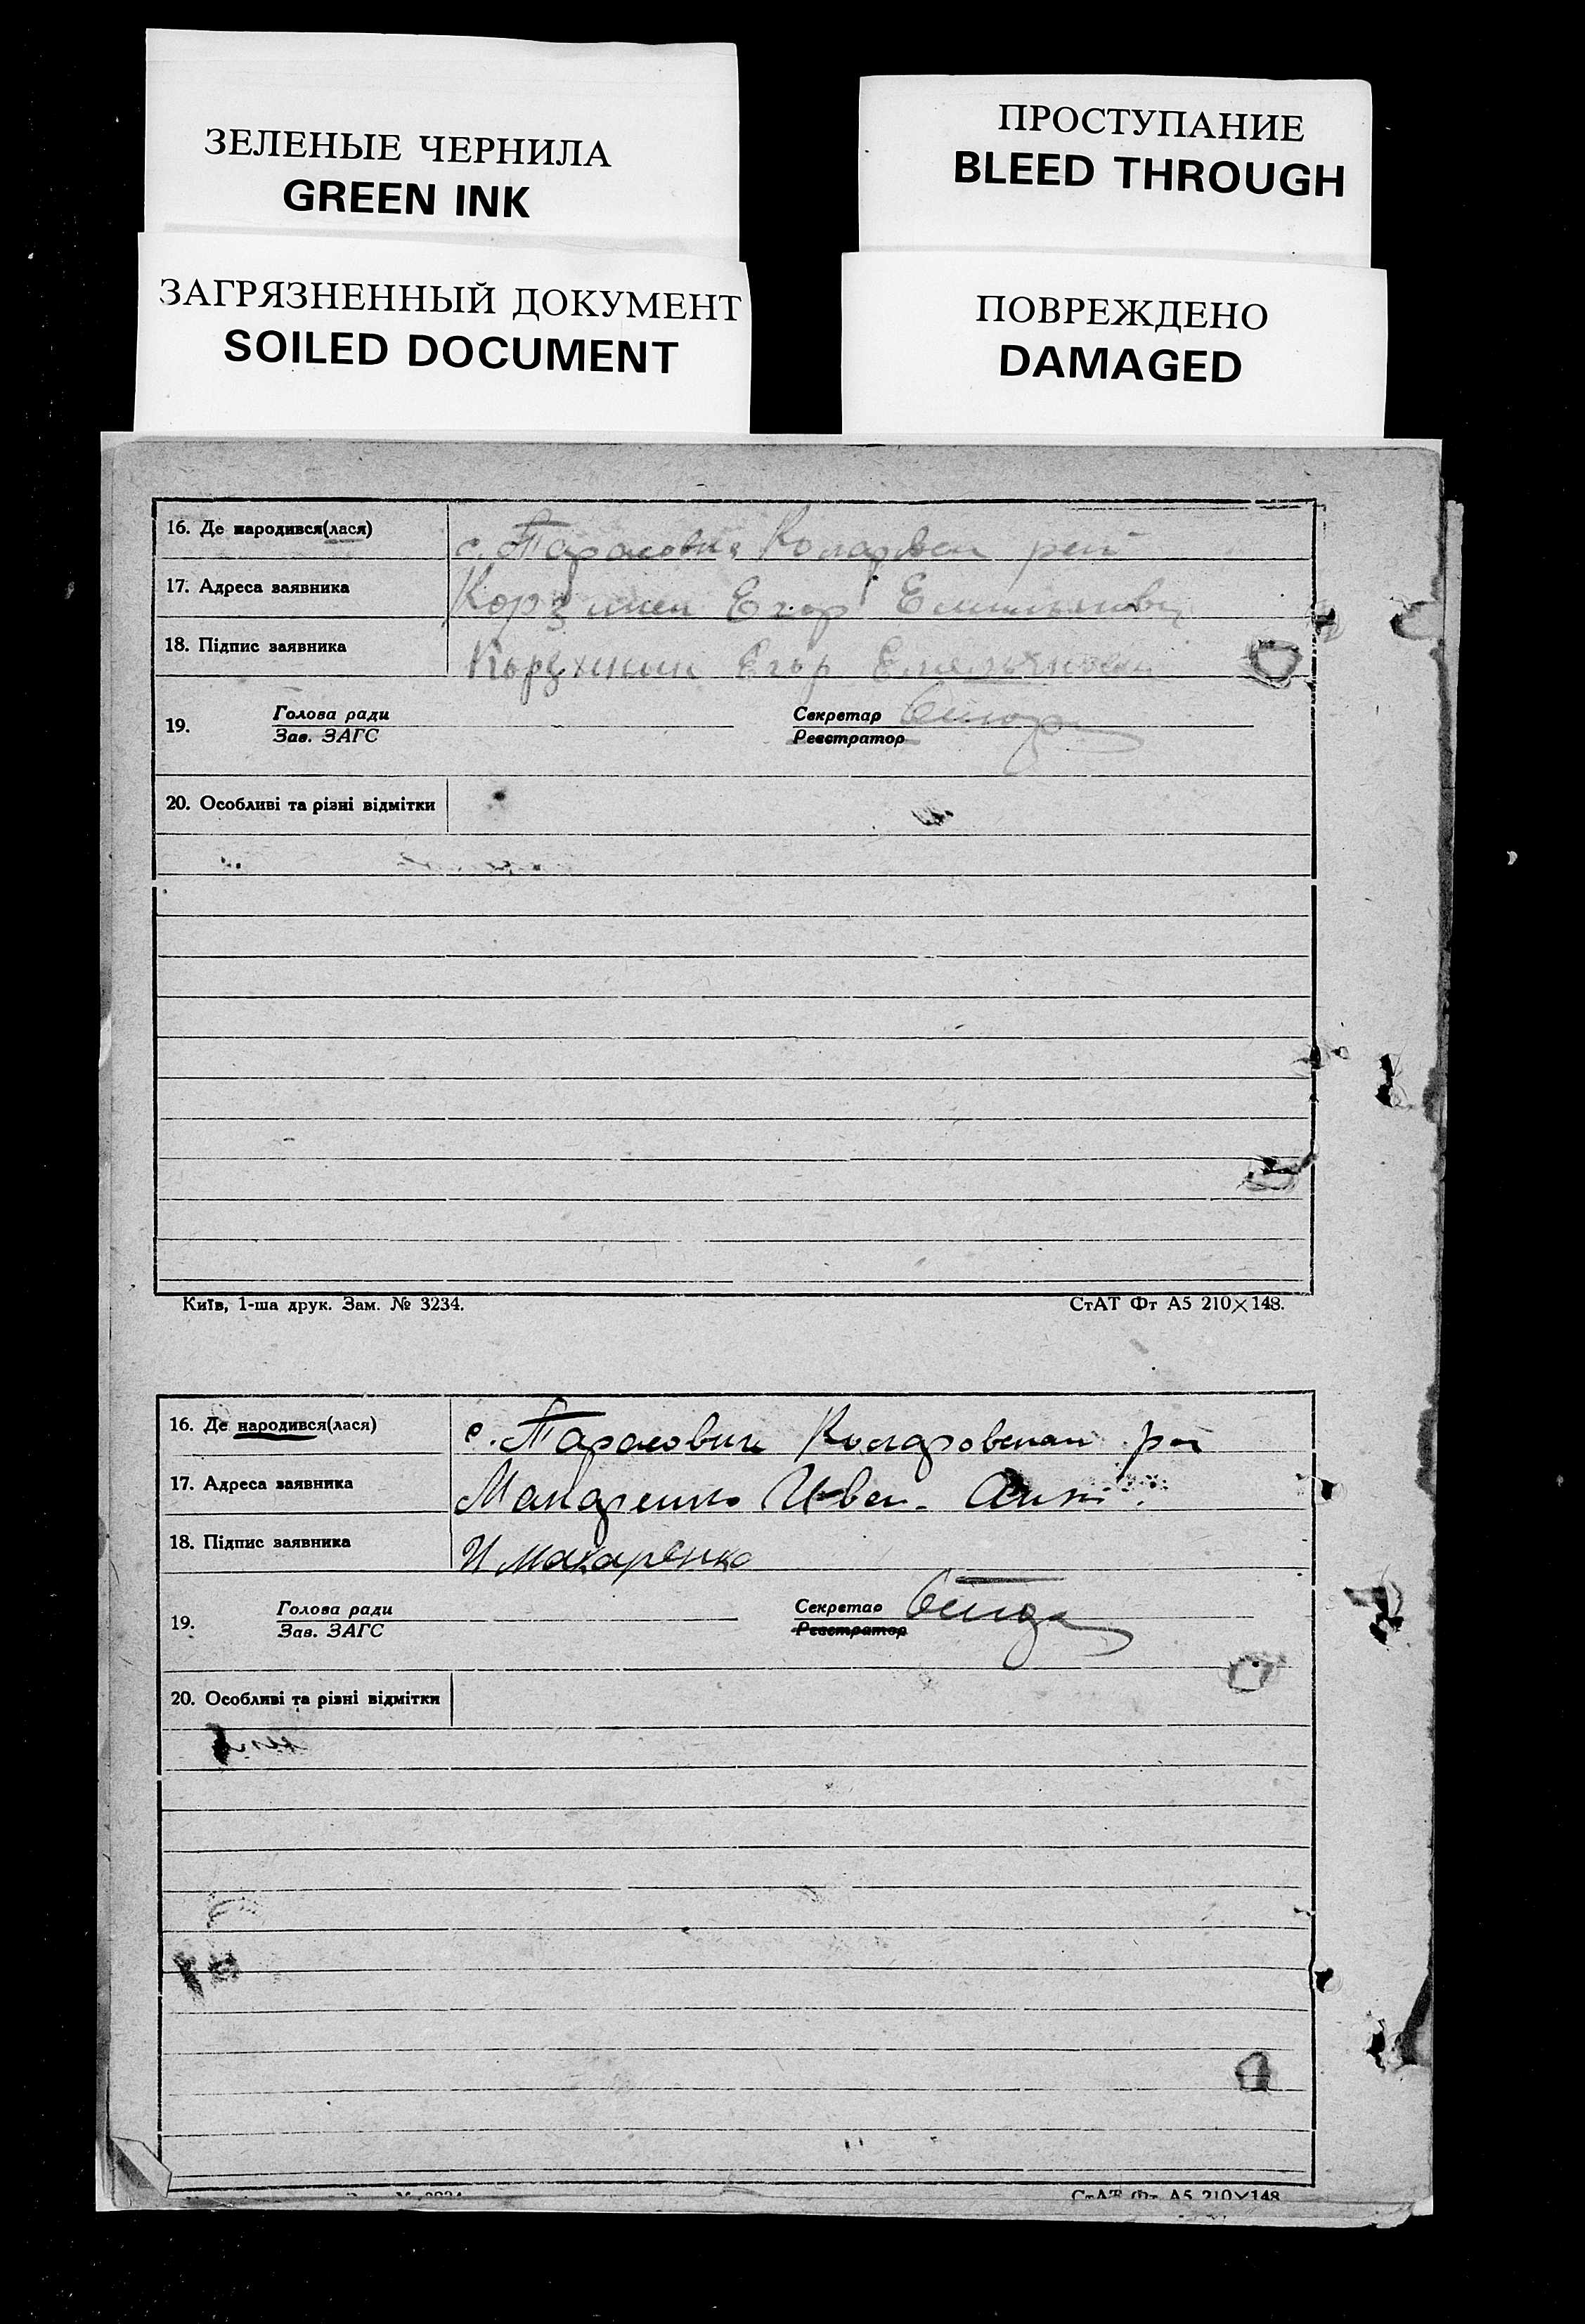 ЗЕЛЕНЫЕ ЧЕРНИЛА
GREEN INK
ПРОСТУПАНИЕ
BLEED THROUGH
ЗАГРЯЗНЕННЫЙ ДОКУМЕНТ
SOILED DOCUMENT
ПОВРЕЖДЕНО
DAMAGED
16. Де народився(лася) с. Тарасовка
17. Адреса заявника Егор
18. Підпис заявника Егор
19. Голова ради
Зав. ЗАГС
Секретар
Реєстратор
20. Особливі та різні відмітки
Київ, 1-ша друк. Зам. № 3234.
СтАТ Фт А5 210×148.
16. Де народився(лася) с.
17. Адреса заявника Макаренко Иван
18. Підпис заявника И Макаренко
19. Голова ради
Зав. ЗАГС
Секретар
Реєстратор
20. Особливі та різні відмітки
СтАТ Фт А5 210×148